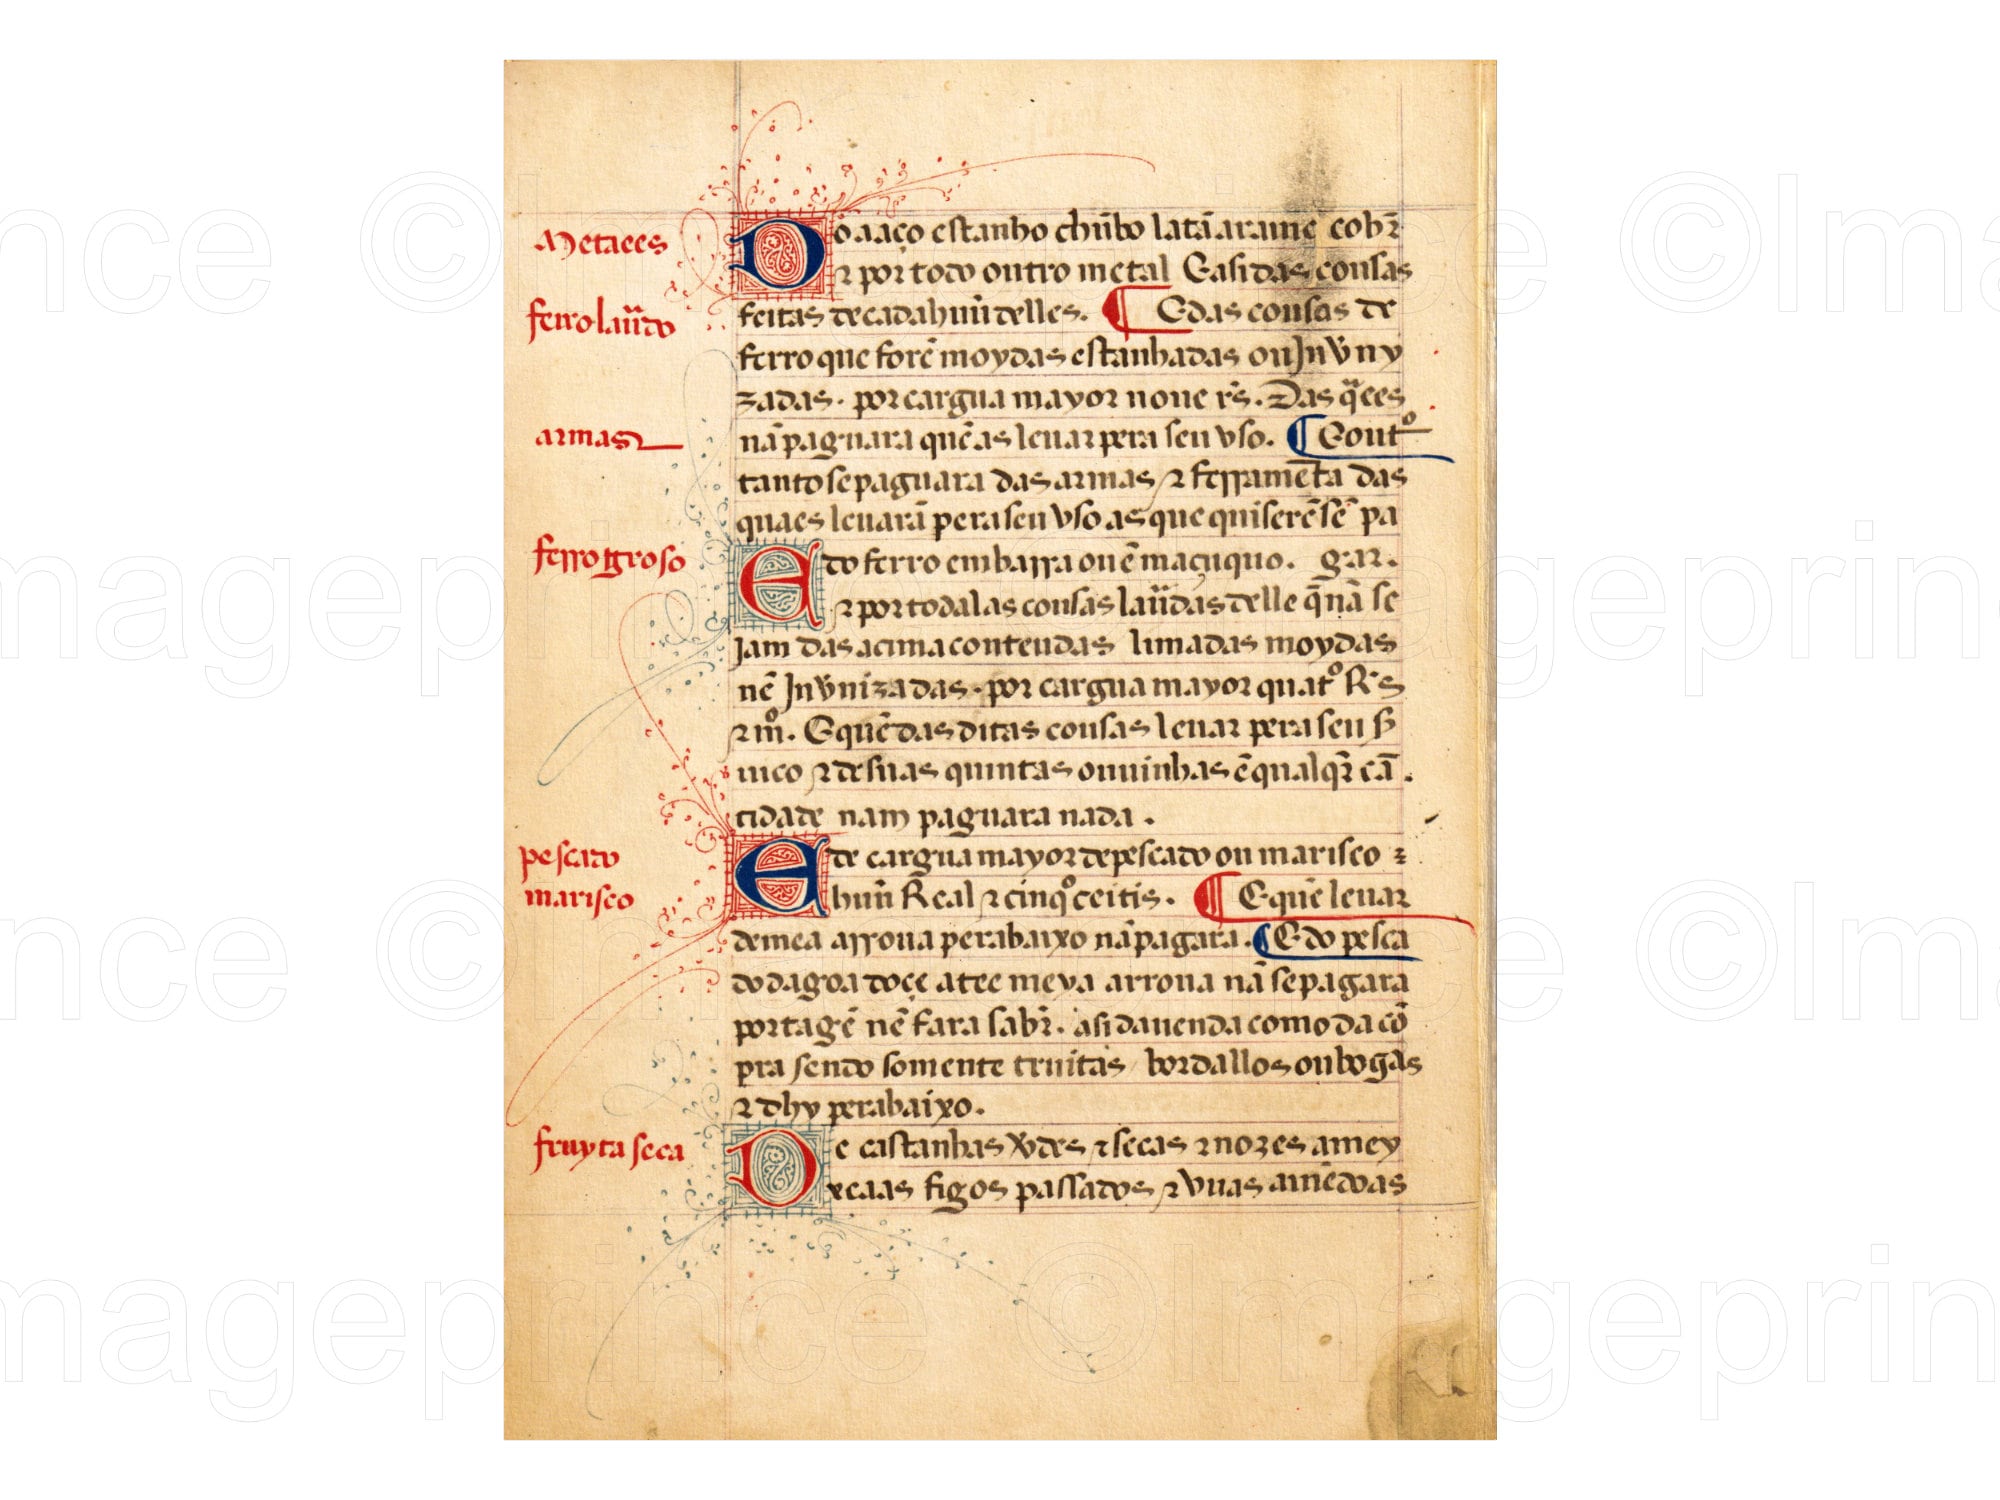 Metaees
Do aaço estanho chũbo latã arame cobr̃
⁊ por todo outro metal E asi das cousas
ferro laurado
feitas de cada huũ delles. ¶ E das cousas de
ferro que forẽ moydas estanhadas ou Jnvny
zadas. por cargua mayor noue rs̃. Das q̃ees
armas
nã paguara quẽ as leuar pera seu vso. ¶ E outº
tanto se paguara das armas ⁊ ferramẽta das
quaes leuarã pera seu vso as que quiserẽ sẽ pa
ferro groso
gar.
E do ferro em barra ou ẽ maçuquo.
⁊ por todalas cousas lauradas delle q̃ nã se
jam das acima conteudas limadas moydas
nẽ Jnvnizadas. por cargua mayor quatº R̃s
⁊ mº. E quẽ das ditas cousas leuar pera seu s̃
uico ⁊ de suas quintas ou uinhas ẽ qualqr̃ cã
tidade nam paguara nada.
pescado
marisco
E de cargua mayor de pescado ou marisco
huũ Real ⁊ cinqº ceitis. ¶ E quẽ leuar
de mea arroua pera baixo nã pagara. ¶ E do pesca
do dagoa doçe atee meya arroua nã se pagara
portagẽ nẽ fara sabr̃. asi da uenda como da cõ
pra sendo somente truitas bordallos ou bogas
⁊ dhy pera baixo.
fruyta seca
De castanhas v̾des ⁊ secas ⁊ nozes amey
xeaas figos passados ⁊ vuas amẽdoas
©Imageprince